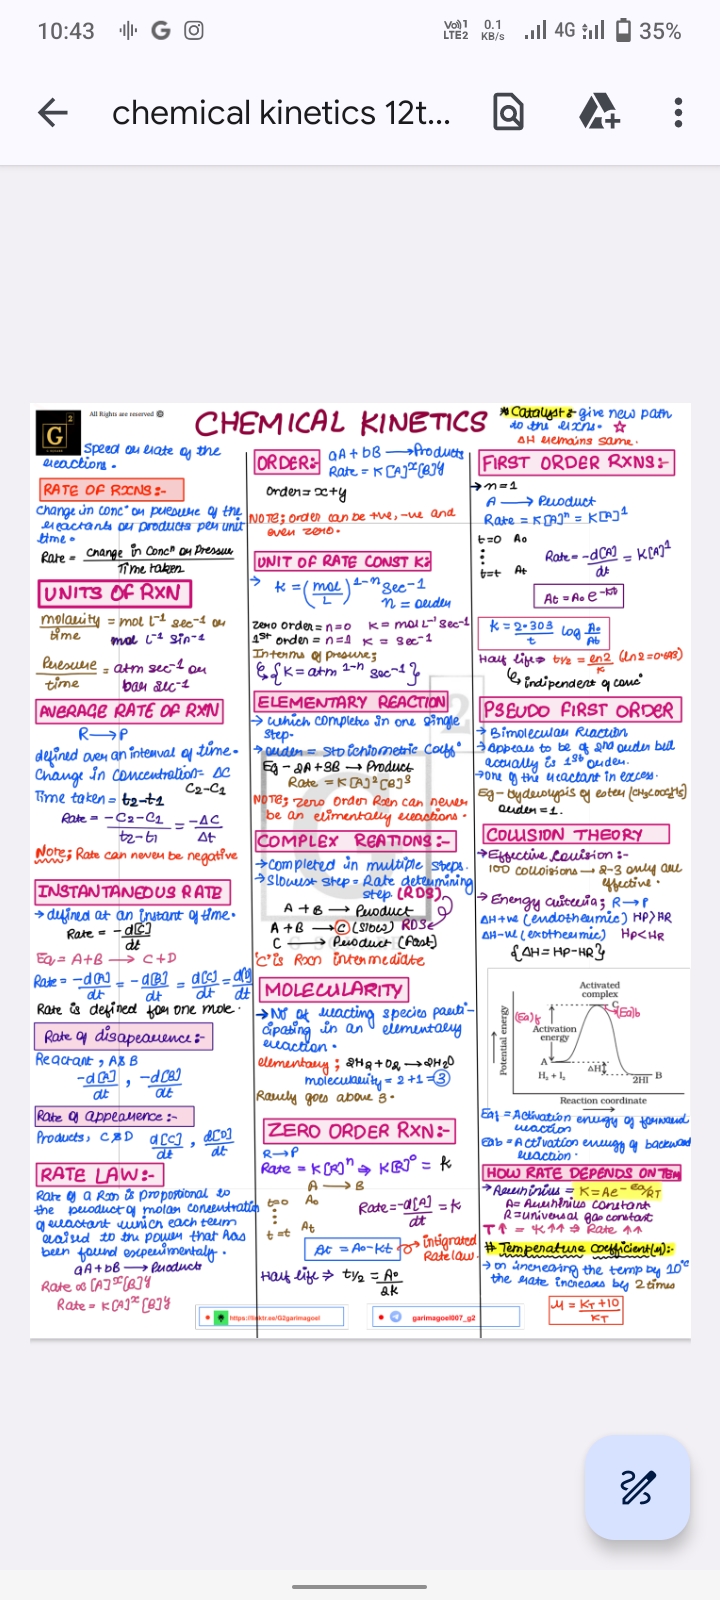 10:43
Vo)) 1
LTE2
0.1
KB/s
4G
35%
chemical kinetics 12t...
G
2
All Rights are reserved
CHEMICAL KINETICS
Speed or rate of the
reactions.
RATE OF RXNS:-
Change in concⁿ or pressure of the
reactants or products per unit
time.
Rate = change in Concⁿ or Pressure
Time taken
UNITS OF RXN
molarity = mol L⁻¹ sec⁻¹ or
time mol L⁻¹ min⁻¹
Pressure = atm sec⁻¹ or
time bar sec⁻¹
AVERAGE RATE OF RXN
R → P
defined over an interval of time.
Change in Concentration = ΔC
C2-C1
Time taken = t2-t1
Rate = -C2-C1 = -ΔC
t2-t1 Δt
Note; Rate can never be negative
INSTANTANEOUS RATE
→ defined at an instant of time.
Rate = -d[C]
dt
Eq = A+B → C+D
Rate = -d[A] = -d[B] = d[C] = d[D]
dt dt dt dt
Rate is defined for one mole.
Rate of disapearence:-
Reactant, A & B
-d[A] , -d[B]
dt dt
Rate of appearence:-
Products, C & D d[C] , d[D]
dt dt
RATE LAW:-
Rate of a Rxn is proportional to
the product of molar concentration
of reactant which each term
raised to the power that has
been found experimentaly.
aA+bB → Products
Rate ∝ [A]ˣ[B]ʸ
Rate = K[A]ˣ[B]ʸ
ORDER:- aA+bB → Products
Rate = K[A]ˣ[B]ʸ
Order = x+y
NOTE; Order can be +ve, -ve and
even zero.
UNIT OF RATE CONST K:
→ K = (mol/L)¹⁻ⁿ sec-1
n = order
Zero Order = n=0 K = mol L⁻¹ sec-1
1st order = n=1 K = sec-1
In terms of pressure;
{K = atm ¹⁻ⁿ sec-1}
ELEMENTARY REACTION
→ which completes in one single
step.
→ order = Stoichiometric Coeffⁿ
Eg - 2A+3B → Product
Rate = K[A]²[B]³
NOTE; Zero Order Rxn can never
be an elimentally reactions.
COMPLEX REATIONS:-
→ Completed in multiple steps.
→ Slowest Step = Rate determining
step (RDS)
A + B → Product
A + B → C (Slow) RDS
C → Product (Fast)
'C' is Rxn intermediate
MOLECULARITY
→ No of reacting species parti-
cipating in an elementary
reaction.
elementary; 2H2+O2 → 2H2O
molecularity = 2+1 = 3
Rarely goes above 3.
ZERO ORDER RXN:-
R → P
Rate = K[R]ⁿ ⇒ K[R]⁰ = K
A → B
t=0 A0
Rate = -d[A] = K
dt
t=t At
At = A0-Kt
intigrated
Rate law.
Half life ⇒ t1/2 = A0
2K
https://linktr.ee/G2garimagoel
garimagoel007_g2
* Catalyst:- give new path
to the rxns. ☆
ΔH remains same.
FIRST ORDER RXNS:-
→ n=1
A → Product
Rate = K[A]ⁿ = K[A]¹
t=0 A0
Rate = -d[A] = K[A]¹
dt
t=t At
At = A0 e⁻ᵏᵗ
K = 2.303 log A0
t At
Half life ⇒ t1/2 = ln2 (ln2=0.693)
K
independent of concⁿ
PSEUDO FIRST ORDER
→ Bimolecular Reaction
→ Appears to be of 2nd order but
actually is 1st order.
→ One of the reactant in excess.
Eg - hydrolysis of ester (CH3COOC2H5)
Order = 1.
COLLISION THEORY
→ Effective Collision:-
100 collisions → 2-3 only are
effective.
→ Energy criteria; R → P
ΔH +ve (endothermic) HP>HR
ΔH -ve (exothermic) HP<HR
{ΔH = HP-HR}
Activated
complex
C
(Ea)f
(Ea)b
Activation
energy
Potential energy
A
H₂ + I₂
ΔH
B
2HI
Reaction coordinate
Eaf = Activation energy of forward
reaction
Eab = Activation energy of backward
reaction.
HOW RATE DEPENDS ON TEM
→ Arrhinius = K=Ae-Ea/RT
A = Arrhinius constant
R = universal gas constant
T↑ = K↑↑ ⇒ Rate ↑↑
# Temperature Coefficient(μ):-
→ on increasing the temp by 10°C
the rate increases by 2 times
μ = KT+10
KT